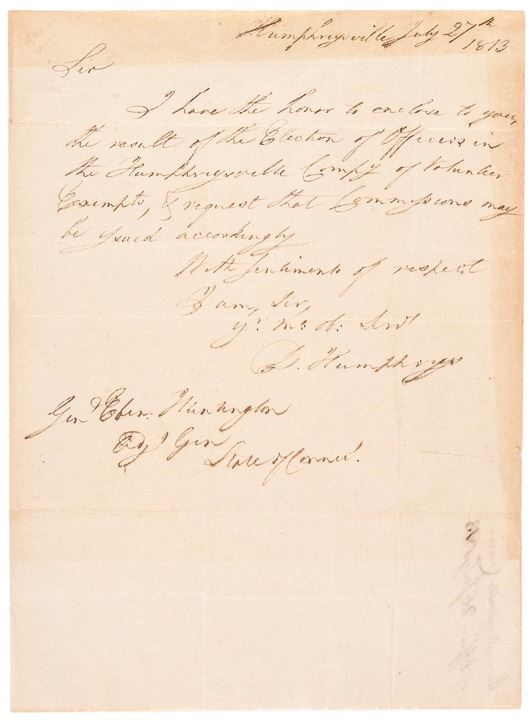 Humphreysville July 27th
1813
Sir
I have the honor to enclose to you,
the result of the Election of Officers in
the Humphreysville Compy of Volunteer
Exempts, & request that Commissions may
be issued accordingly
With Sentiments of respect
I am, Sir,
yr. Mo. ob. Servt
D. Humphreys
Genl Eben. Huntington
Adjt Gen
State of Connect.